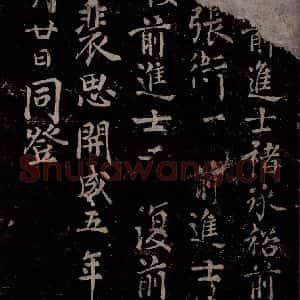 前進士褚承裕前
張衛一前進士
前進士二復前
裴思開成五年
月廿日同登
Shufawang.Cn